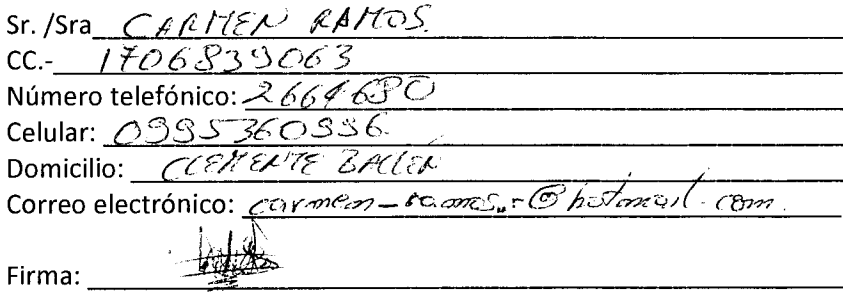 Sr. /Sra CARMEN RAMOS.
CC.- 1706839063
Número telefónico: 2664690
Celular: 0995360996.
Domicilio: CLEMENTE BALLÉN
Correo electrónico: carmen_ramos_r@hotmail.com.
Firma: